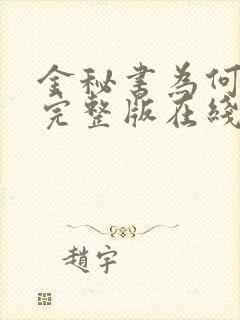 金秘書為何
完整版在綫
趙宇